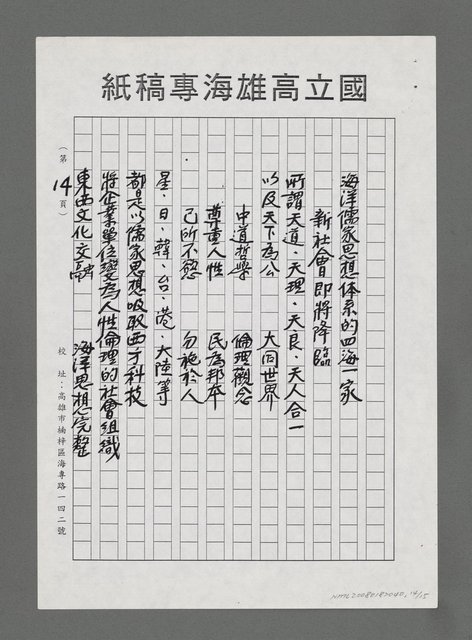 國立高雄海專稿紙
海洋儒家思想体系的四海一家
新社會即將降臨
所謂天道．天理．天良．天人合一
以及天下為公 大同世界
中道哲學 倫理觀念
尊重人性 民為邦本
己所不慾 勿施於人
星．日．韓．台．港．大陸等
都是以儒家思想吸取西方科技
將企業單位變為人性倫理的社會組織
東西文化交融 海洋思想完整
（第14頁）
校址：高雄市楠梓區海專路一四二號
NMTL20080182040, 14/15